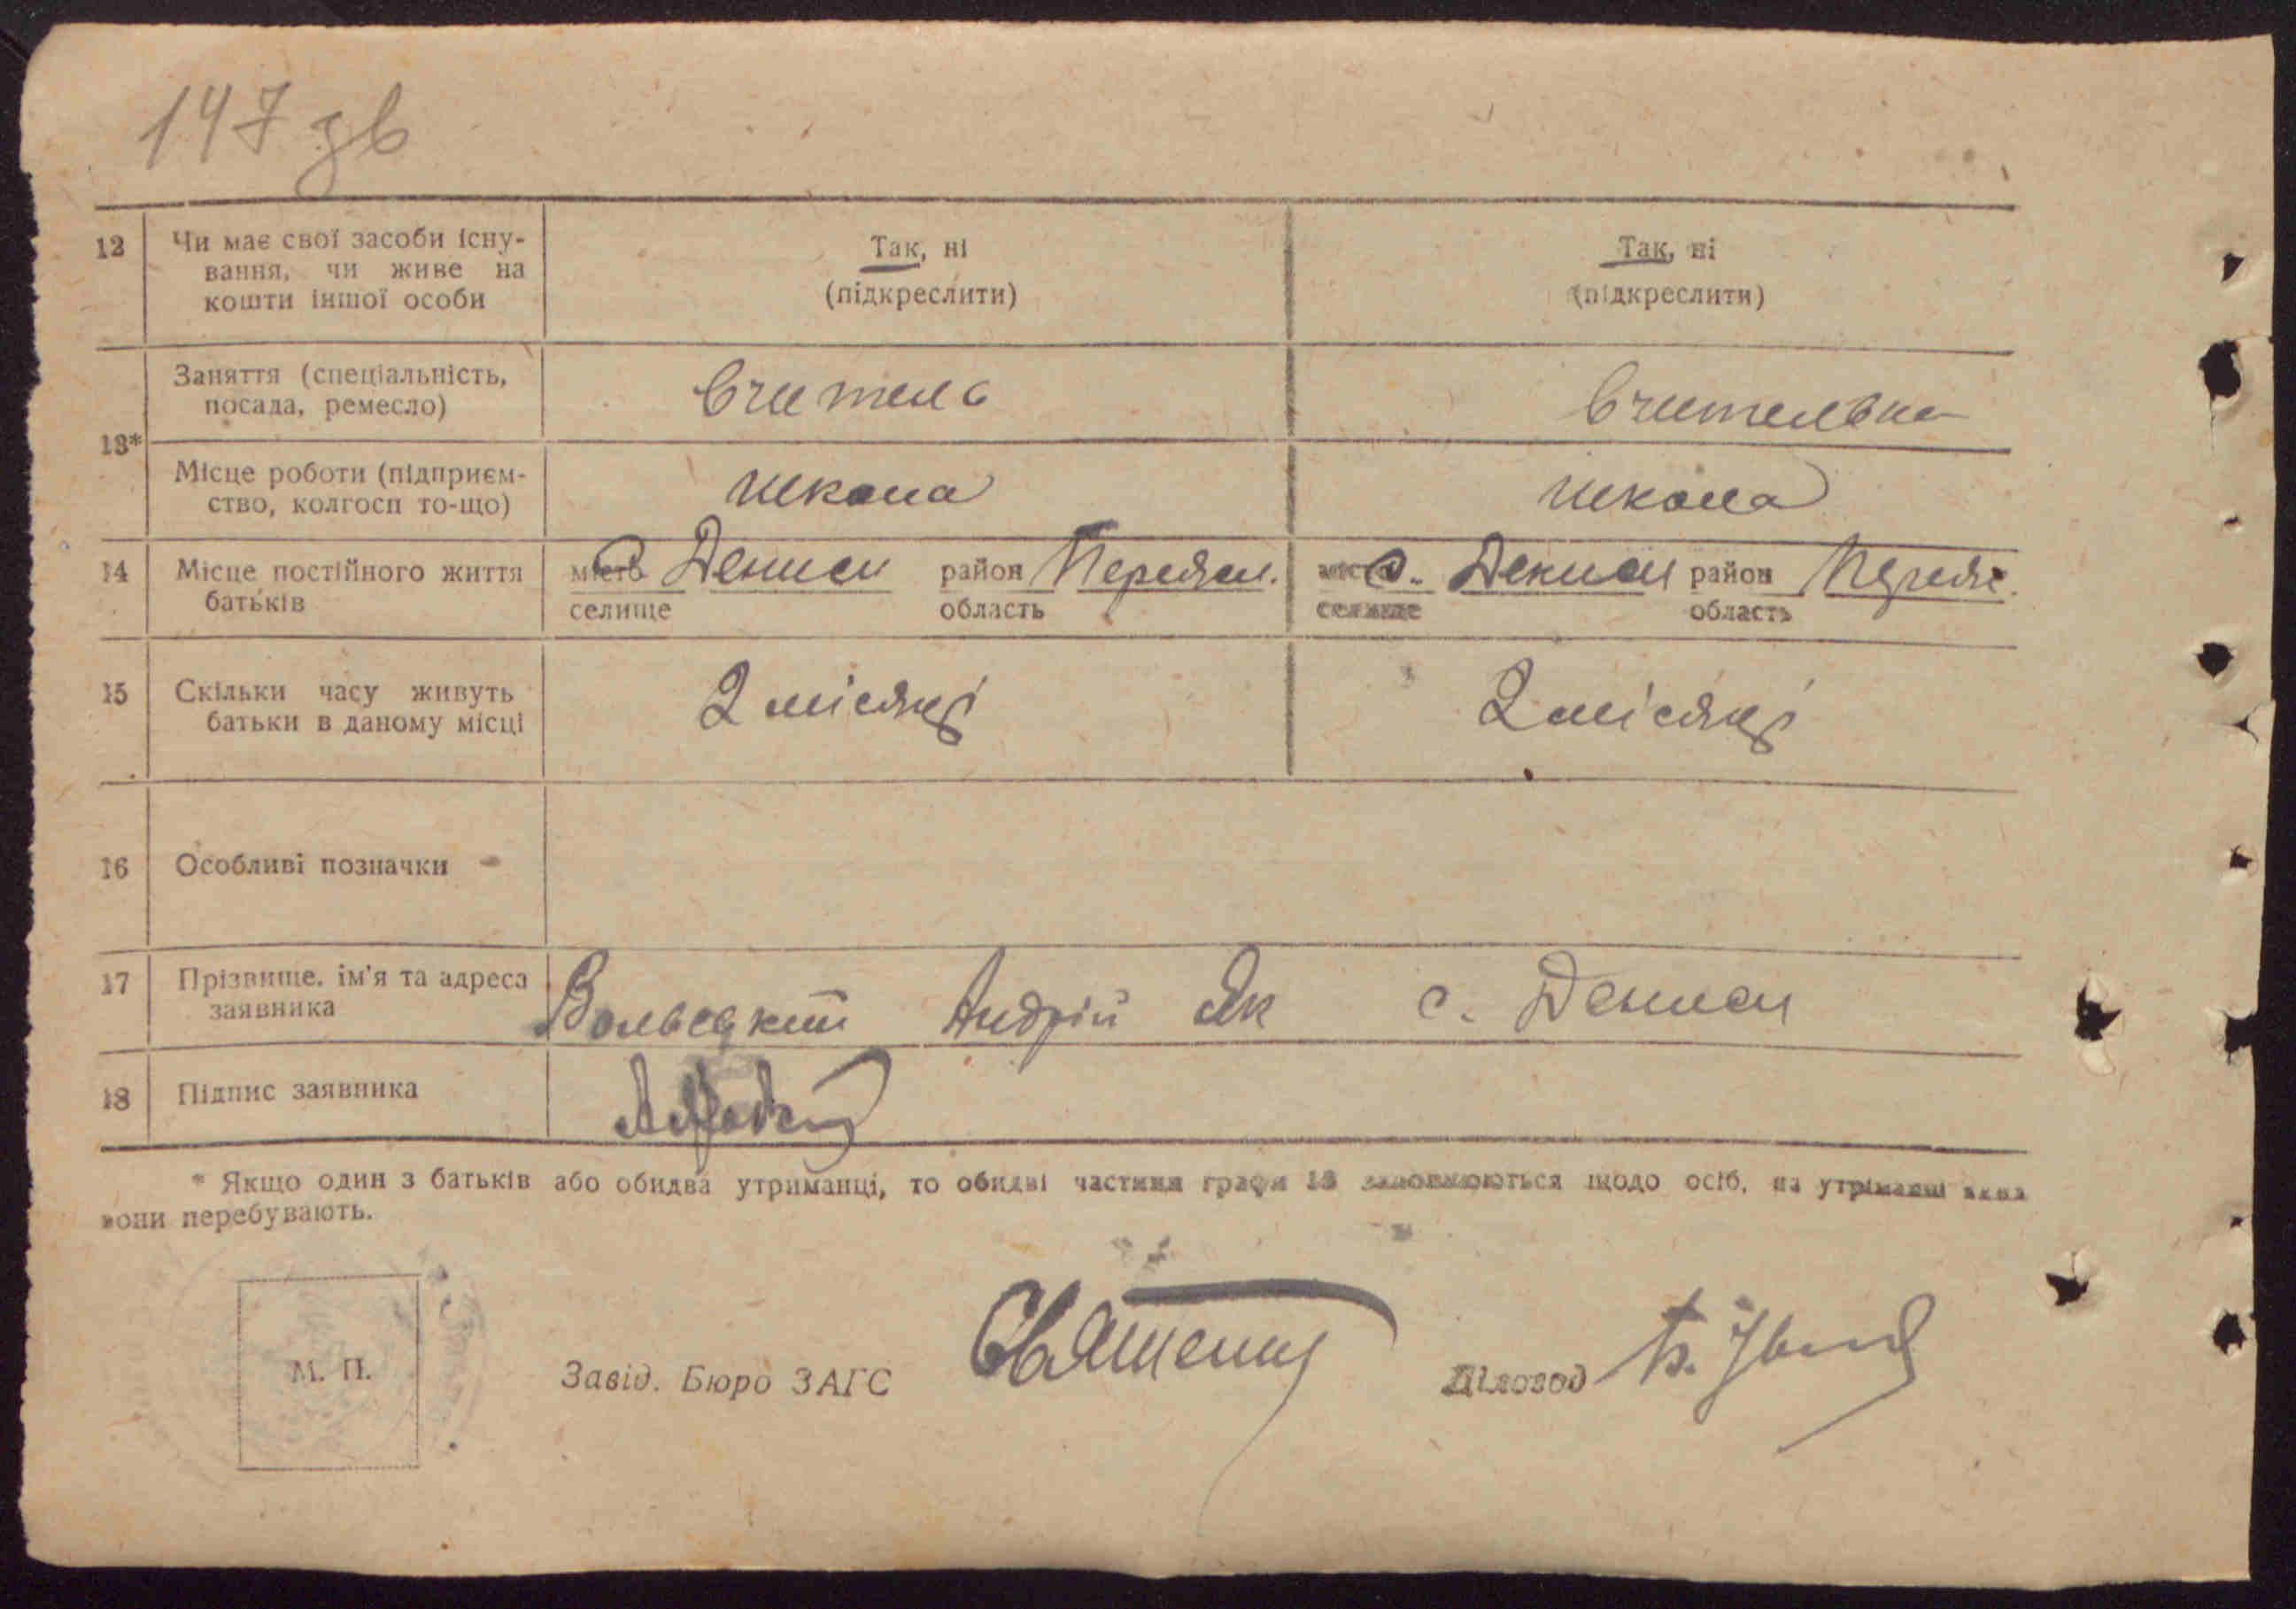 147 зв
12 Чи має свої засоби існу- Так, ні Так, ні
вання, чи живе на (підкреслити) (підкреслити)
кошти іншої особи
13* Заняття (спеціальність, вчитель вчителька
посада, ремесло)
Місце роботи (підприєм- школа школа
ство, колгосп то-що)
14 Місце постійного життя місто с. Дениси район Переясл. с. Дениси район Переяс.
батьків селище область селище область
15 Скільки часу живуть 2 місяці 2 місяці
батьки в даному місці
16 Особливі позначки
17 Прізвище, ім'я та адреса Вольсцкий Андрій Як с. Дениси
заявника
18 Підпис заявника
* Якщо один з батьків або обидва утриманці, то обидві частини графи 13 заповнюються щодо осіб, на утриманні яких
вони перебувають.
М. П. Завід. Бюро ЗАГС Діловод